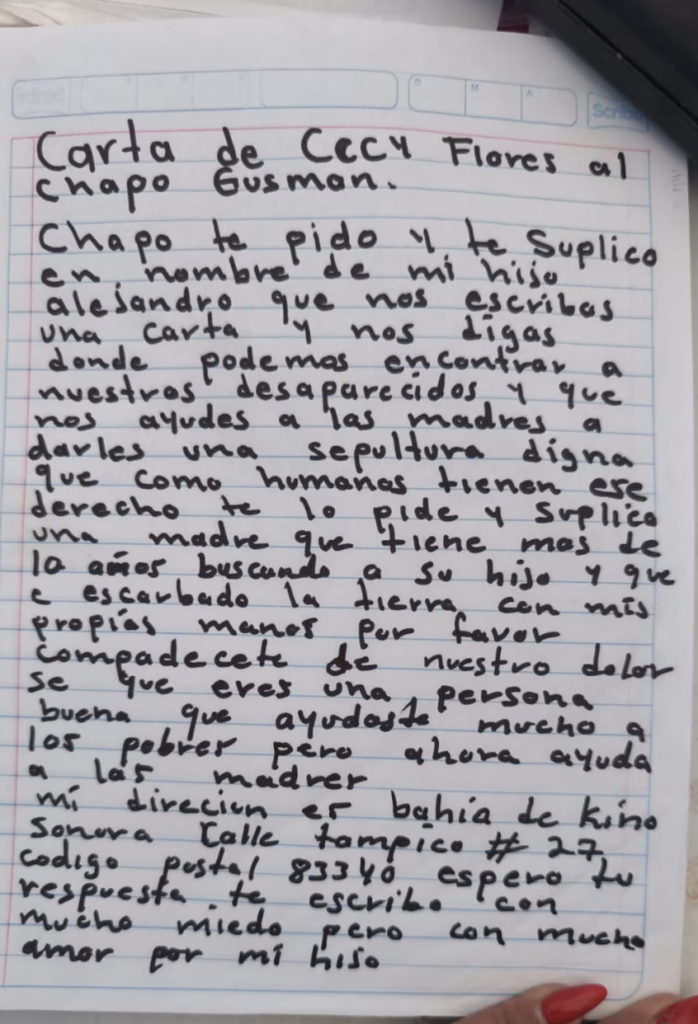 Scribe
D M A
Carta de Cecy Flores al
chapo Gusman.
Chapo te pido y te Suplico
en nombre de mi hijo
alejandro que nos escribas
una carta y nos digas
donde podemos encontrar a
nuestros desaparecidos y que
nos ayudes a las madres a
darles una sepultura digna
que como humanas tienen ese
derecho te lo pide y suplica
una madre que tiene mas de
10 años buscando a su hijo y que
e escarbado la tierra con mis
propias manos por favor
compadecete de nuestro dolor
se que eres una persona
buena que ayudaste mucho a
los pobrer pero ahora ayuda
a las madrer
mi direcion er bahia de kino
Sonora Calle tampico # 27
codigo postal 83340 espero tu
respuesta. te escribo con
mucho miedo pero con mucho
amor por mi hijo